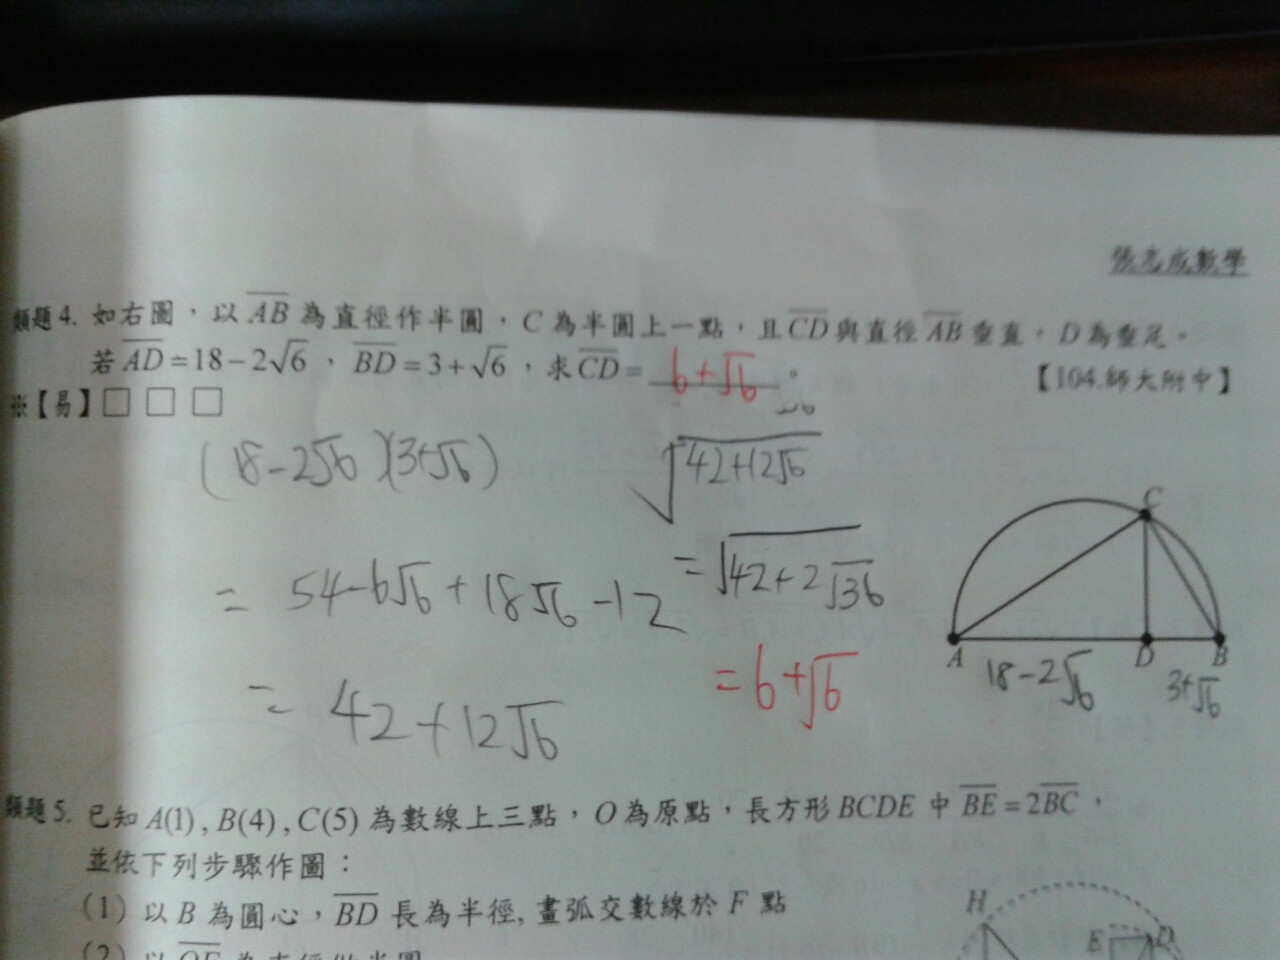 張志成數學
類題4. 如右圖，以AB為直徑作半圓，C為半圓上一點，且CD與直徑AB垂直，D為垂足。
若AD=18-2√6，BD=3+√6，求CD= 6+√6 。 【104.師大附中】
※【易】□ □ □
(18-2√6)(3+√6)
= 54-6√6+18√6-12
= 42+12√6
√(42+12√6)
= √(42+2√36
= 6+√6
C
A D B
18-2√6 3+√6
類題5. 已知A(1),B(4),C(5)為數線上三點，O為原點，長方形BCDE中BE=2BC，
並依下列步驟作圖：
(1) 以B為圓心，BD長為半徑,畫弧交數線於F點
(2) 以OF為直徑做半圓
H
E D